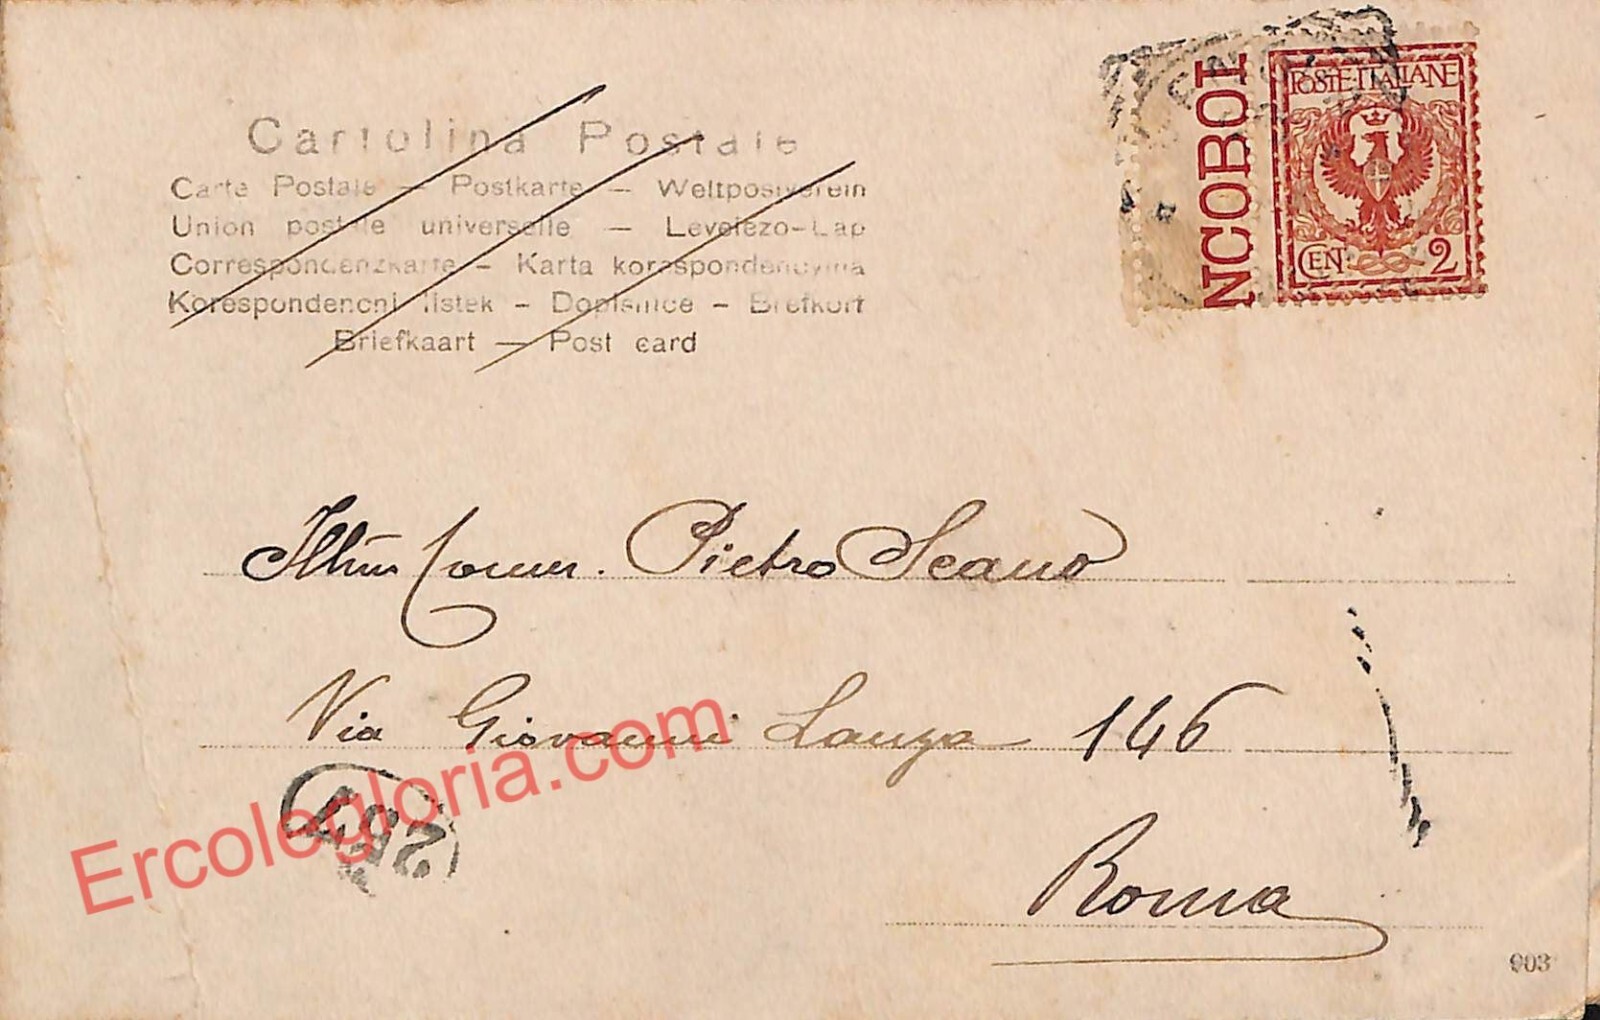 Cartolina Postale
Carte Postale — Postkarte — Weltpostverein
Union postale universelle — Levelezo-Lap
Correspondenzkarte - Karta korespondencyjna
Korespondencni listek - Dopisnice - Brefkort
Briefkaart — Post card
NCOBOI
POSTE·ITALIANE
CEN. 2
Illm̃o Comm. Pietro Scano
Via Giovanni Lanza 146
Roma
Ercolegloria.com
903